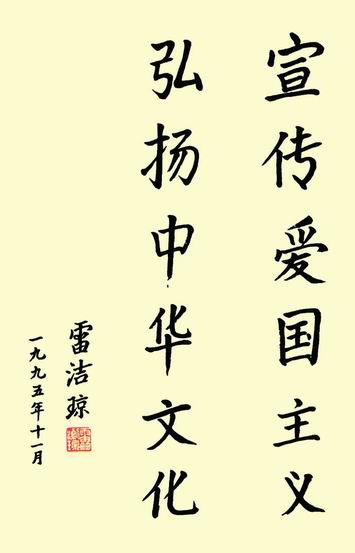 宣传爱国主义
弘扬中华文化
雷洁琼
一九九五年十一月